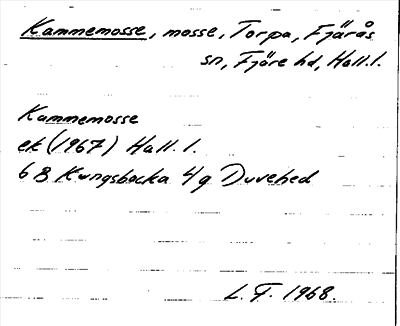 Kammemosse, mosse, Torpa, Fjärås
sn, Fjäre hd, Hall. l.
Kammemosse
ek (1967) Hall. l.
6 B Kungsbacka 4 g Duvehed
L. F. 1968.